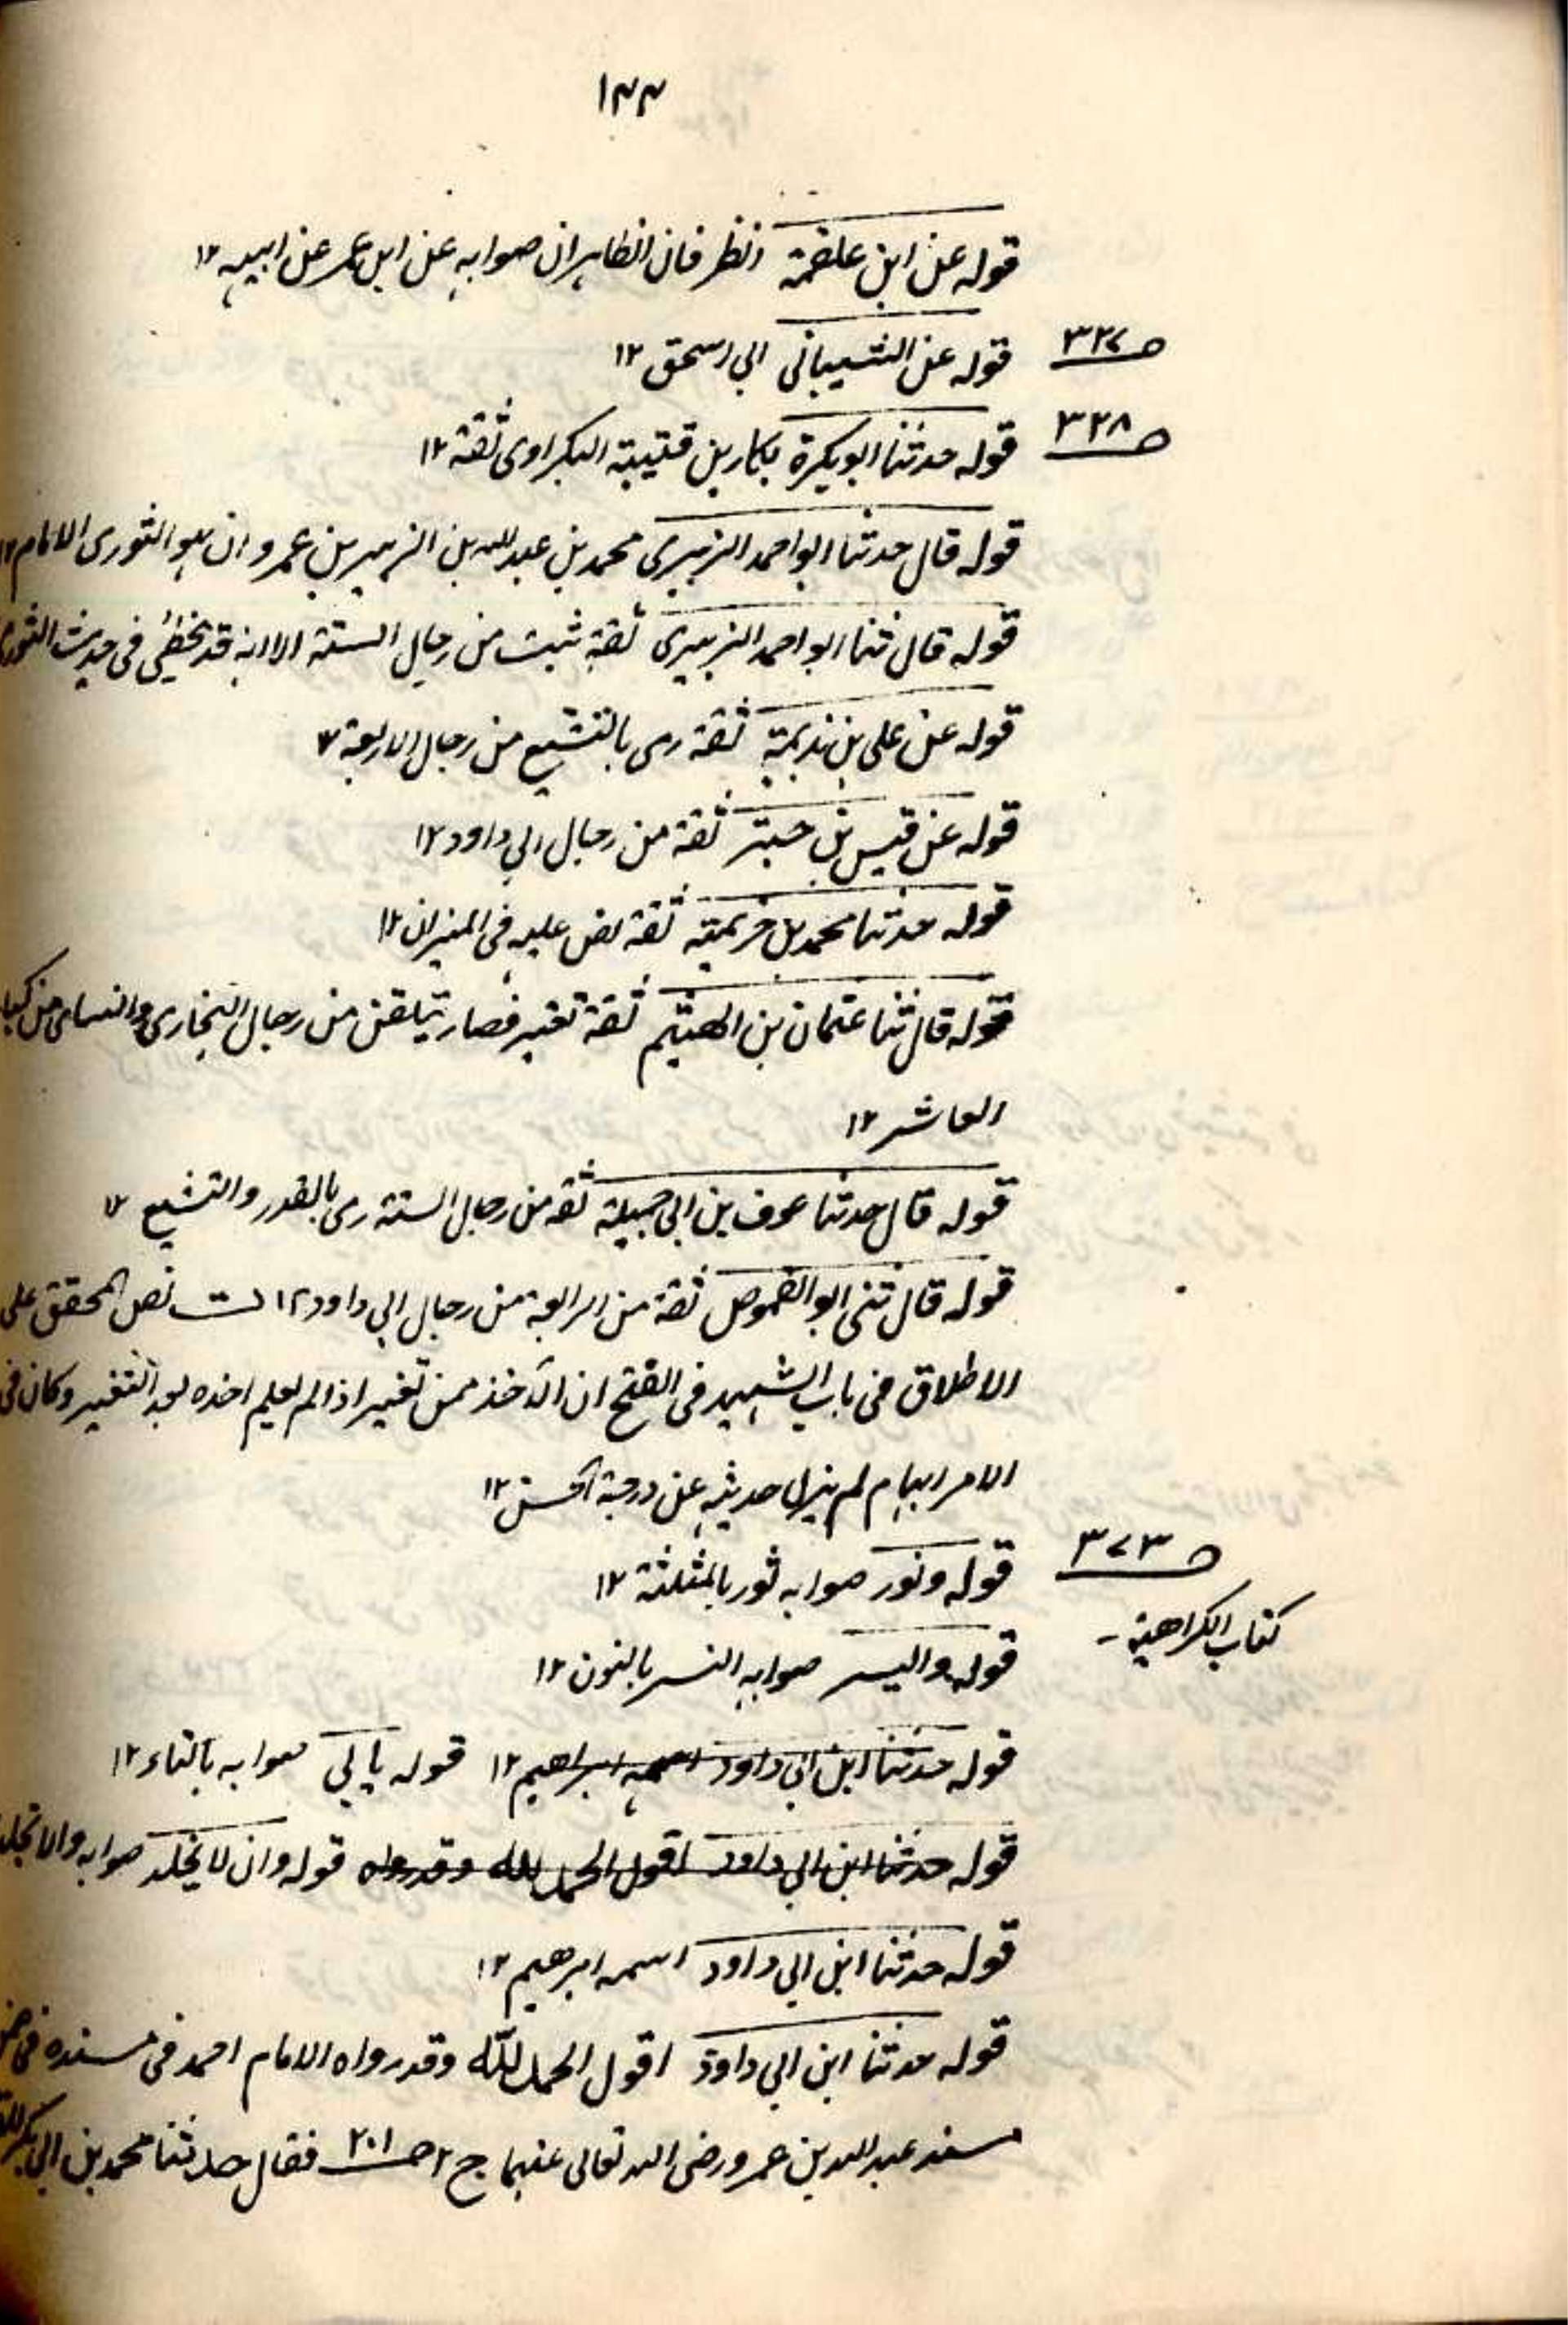 ١٣٣
قوله عن ابن علقمة انظر فان الظاهر ان صوابه عن ابن عمر عن ابيه ١٢
صـ ٣٢٧
قوله عن الشيباني ابي اسحق ١٢
صـ ٣٢٨
قوله حدثنا ابو بكرة بكار بن قتيبة البكراوى ثقة ١٢
قوله قال حدثنا ابو احمد الزبيرى محمد بن عبد الله بن الزبير بن عمرو ان هو الثورى الامام ١٢
قوله قال ثنا ابو احمد الزبيرى ثقة ثبت من رجال الستة الا انه قد يخطئ فى حديث الثورى
قوله عن على بن بذيمة ثقة رمى بالتشيع من رجال الاربعة ١٢
قوله عن قيس بن حبتر ثقة من رجال ابي داود ١٢
قوله حدثنا محمد بن خزيمة ثقة نص عليه فى الميزان ١٢
قوله قال ثنا عثمان بن الهيثم ثقة تغير فصار يتلقن من رجال البخارى والنسائى من كبار
العاشر ١٢
قوله قال حدثنا عوف بن ابى جميلة ثقة من رجال الستة رمى بالقدر والتشيع ١٢
قوله قال ثنى ابو القموص ثقة من الرابعة من رجال ابي داود ١٢ نص المحقق على
الاطلاق فى باب الشهيد فى الفتح ان الآخذ ممن تغير اذا لم يعلم اخذه بعد التغير وكان فى
الامر ابهام لم ينزل حديثه عن درجة الحسن ١٢
صـ ٣٧٣
كتاب الكراهية -
قوله ونور صوابه ثور بالمثلثة ١٢
قوله واليسر صوابه النسر بالنون ١٢
قوله حدثنا ابن ابي داود اسمه ابراهيم ١٢ قوله يا لي صوابه بالتاء ١٢
قوله حدثنا ابن ابي داود اقول الحمد لله وقد رواه قوله وان لا يخلد صوابه والا تخلد
قوله حدثنا ابن ابي داود اسمه ابرهيم ١٢
قوله حدثنا ابن ابي داود اقول الحمد لله وقد رواه الامام احمد فى مسنده فى
مسند عبد الله بن عمرو رضى الله تعالى عنهما ج ٢ صـ ٢٠١ فقال حدثنا محمد بن ابي بكر